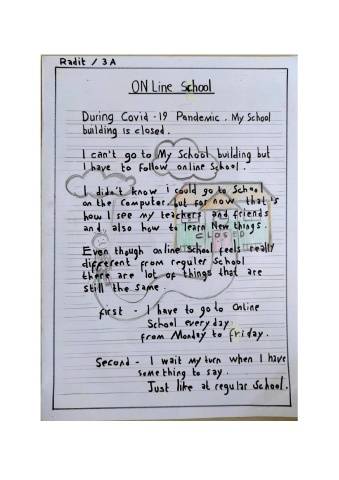 Radit / 3A
ON Line School
During Covid - 19 Pandemic. My School
building is closed.
I can't go to My School building but
I have to follow online School.
I didn't know i could go to School
on the computer but for now that's
how I see my teachers and friends
and also how to learn New things.
CLOSED
Even though online School feels really
different from regular School
there are lot of things that are
still the same.
first - I have to go to Online
School every day
from Monday to friday.
Second - I wait my turn when I have
something to say.
Just like at regular School.